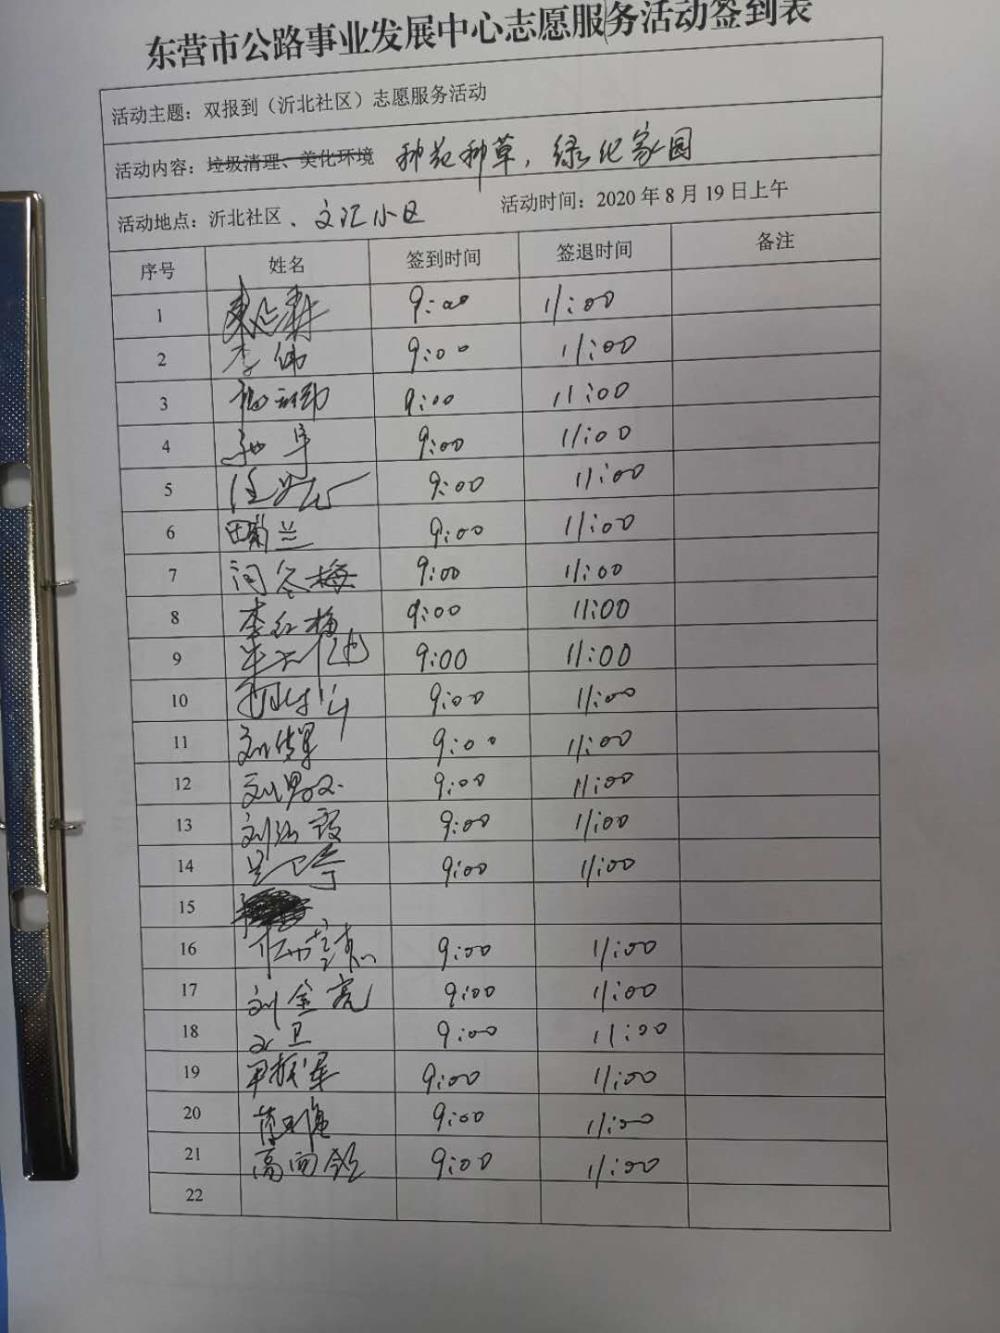 东营市公路事业发展中心志愿服务活动签到表
活动主题：双报到（沂北社区）志愿服务活动
活动内容：垃圾清理、美化环境 种花种草，绿化家园
活动地点：沂北社区、文汇小区 活动时间：2020年8月19日上午
序号 姓名 签到时间 签退时间 备注
1 9:00 11:00
2 李伟 9:00 11:00
3 9:00 11:00
4 9:00 11:00
5 9:00 11:00
6 田菊兰 9:00 11:00
7 闫冬梅 9:00 11:00
8 李红梅 9:00 11:00
9 9:00 11:00
10 9:00 11:00
11 9:00 11:00
12 9:00 11:00
13 9:00 11:00
14 9:00 11:00
15
16 9:00 11:00
17 刘金亮 9:00 11:00
18 9:00 11:00
19 9:00 11:00
20 9:00 11:00
21 9:00 11:00
22